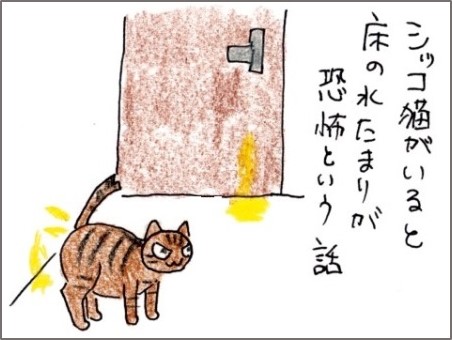 シッコ猫がいると
床の水たまりが
恐怖という話